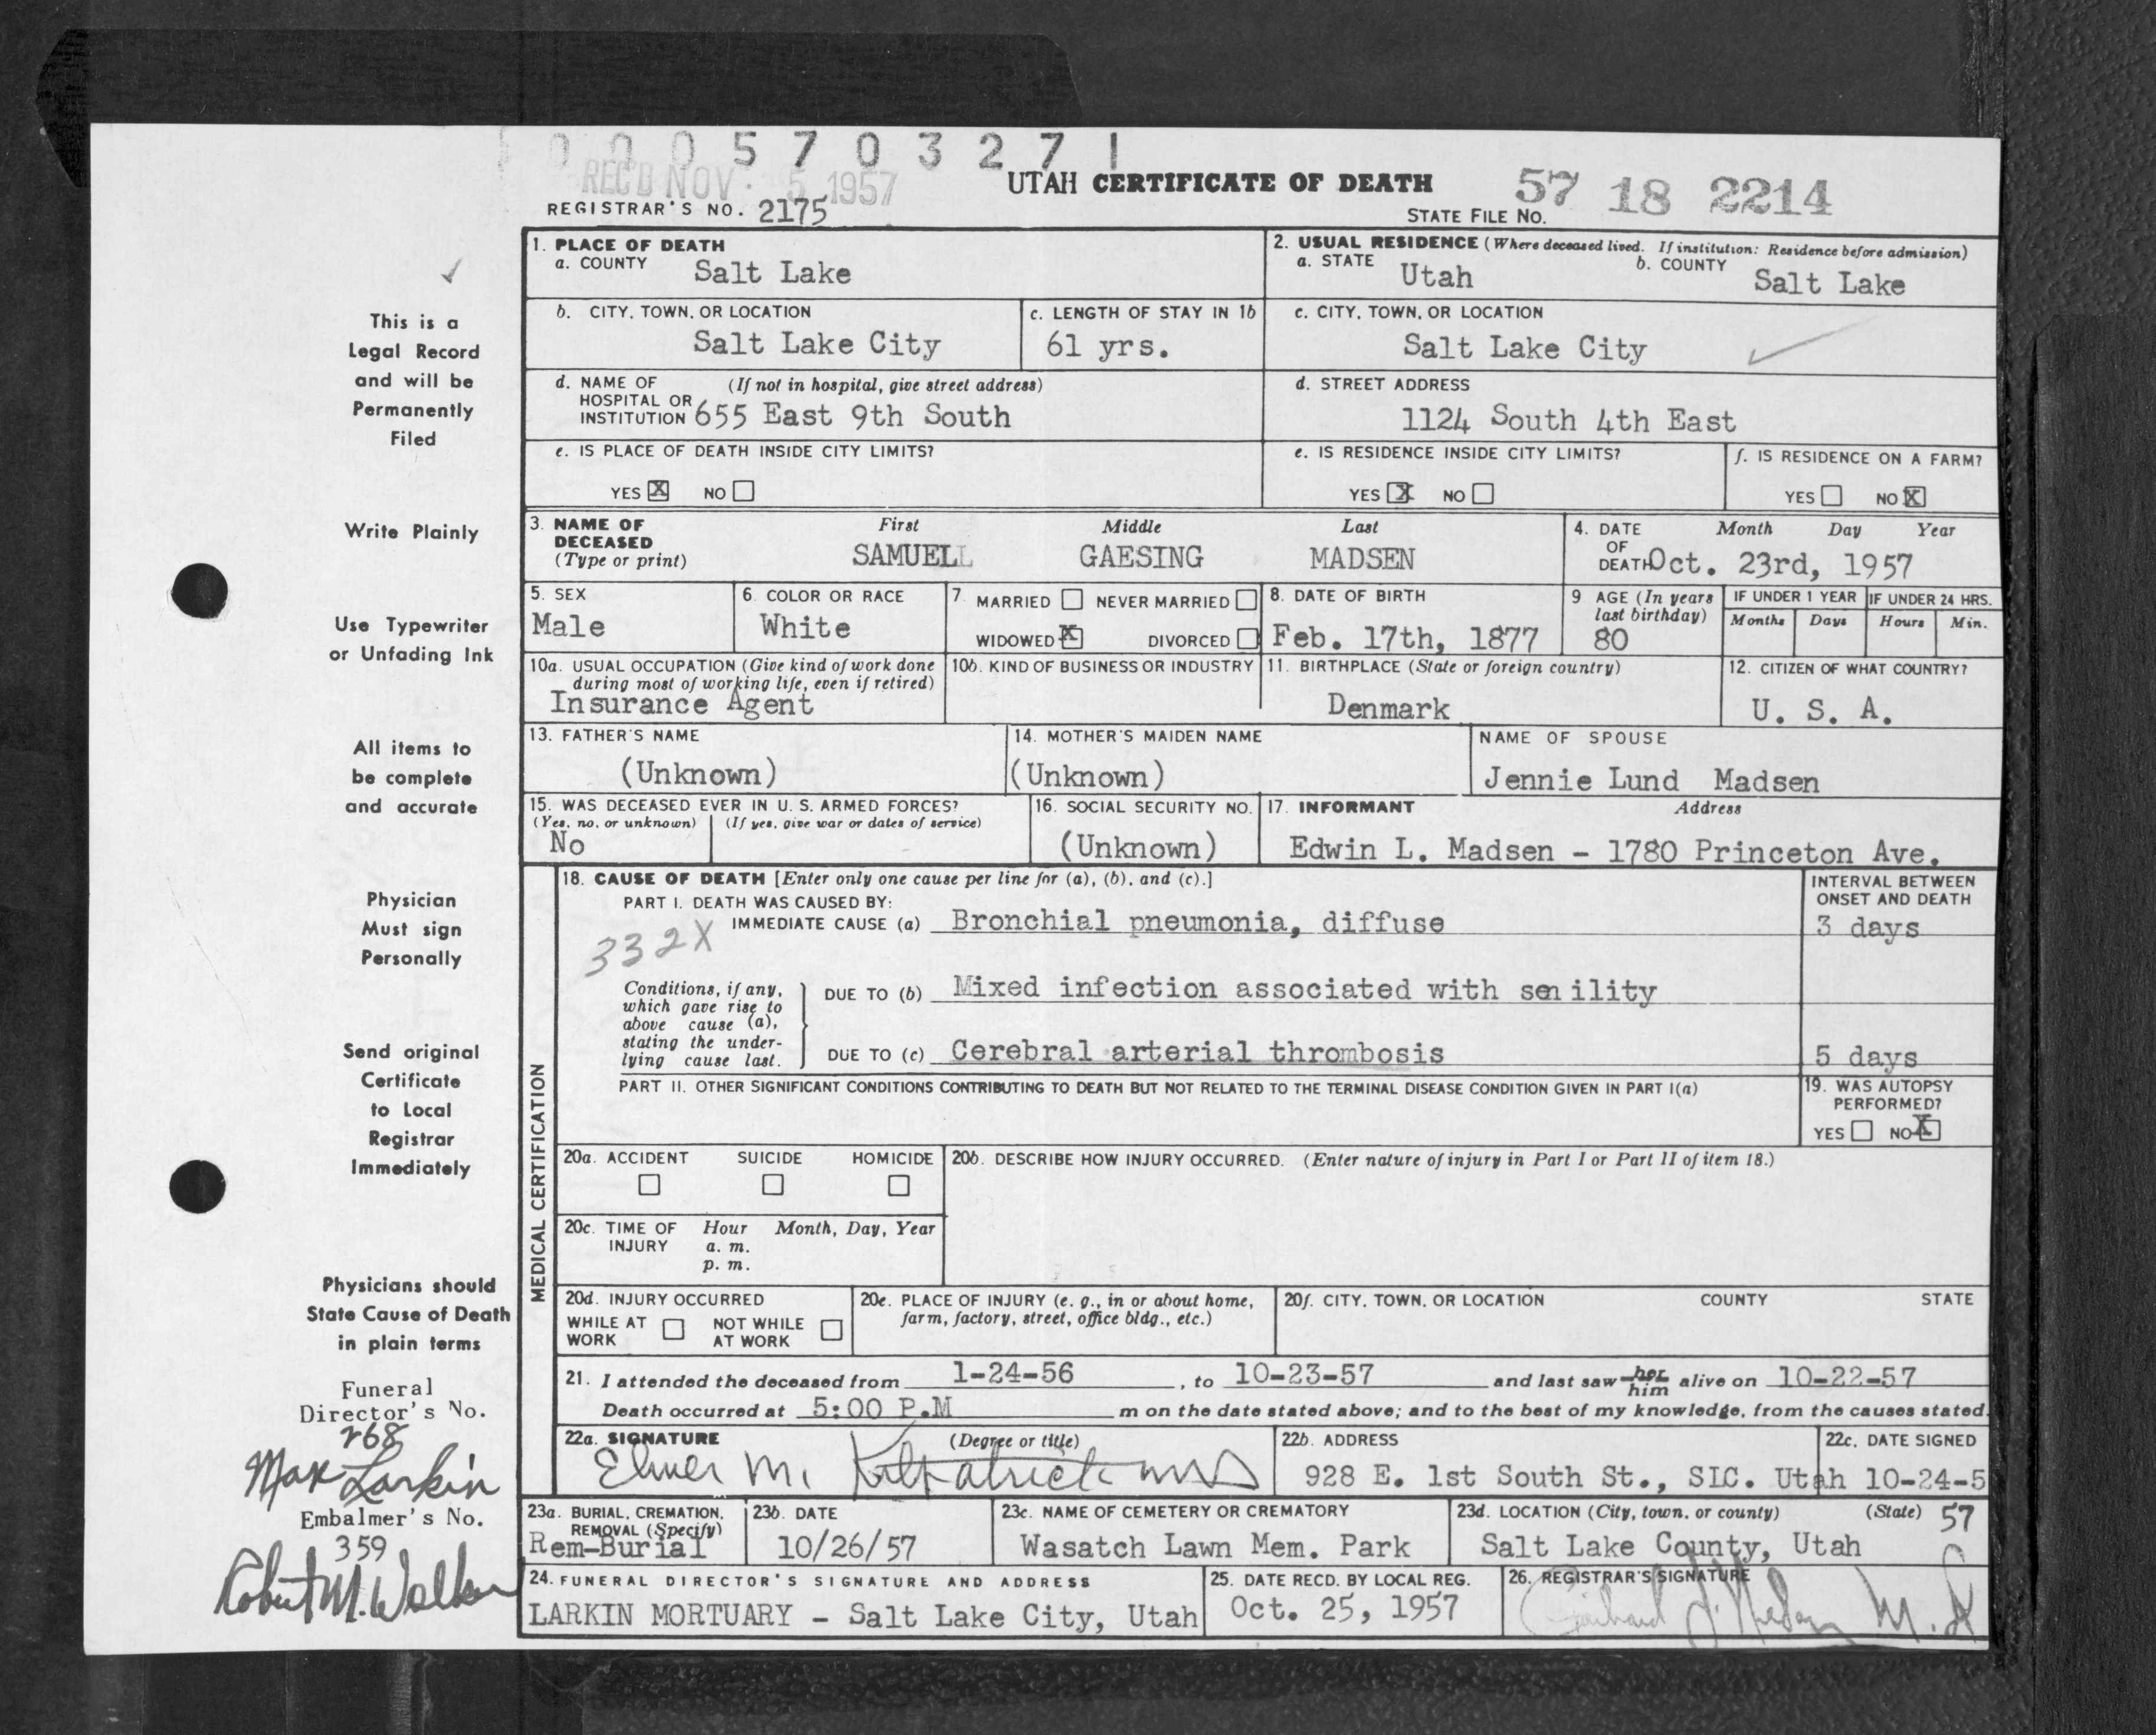 0 0 0 5 7 0 3 2 7 1
REC'D NOV 5 1957
UTAH CERTIFICATE OF DEATH
57 18 2214
REGISTRAR'S NO. 2175
STATE FILE NO.
1. PLACE OF DEATH
a. COUNTY Salt Lake
2. USUAL RESIDENCE (Where deceased lived. If institution: Residence before admission)
a. STATE Utah b. COUNTY Salt Lake
b. CITY, TOWN, OR LOCATION
Salt Lake City
c. LENGTH OF STAY IN 1b
61 yrs.
c. CITY, TOWN, OR LOCATION
Salt Lake City
d. NAME OF (If not in hospital, give street address)
HOSPITAL OR
INSTITUTION 655 East 9th South
d. STREET ADDRESS
1124 South 4th East
e. IS PLACE OF DEATH INSIDE CITY LIMITS?
YES X NO
e. IS RESIDENCE INSIDE CITY LIMITS?
YES X NO
f. IS RESIDENCE ON A FARM?
YES NO X
3. NAME OF DECEASED (Type or print)
First Middle Last
SAMUELL GAESING MADSEN
4. DATE OF DEATH Month Day Year
Oct. 23rd, 1957
5. SEX
Male
6. COLOR OR RACE
White
7. MARRIED NEVER MARRIED
WIDOWED X DIVORCED
8. DATE OF BIRTH
Feb. 17th, 1877
9 AGE (In years last birthday)
80
IF UNDER 1 YEAR IF UNDER 24 HRS.
Months Days Hours Min.
10a. USUAL OCCUPATION (Give kind of work done
during most of working life, even if retired)
Insurance Agent
10b. KIND OF BUSINESS OR INDUSTRY
11. BIRTHPLACE (State or foreign country)
Denmark
12. CITIZEN OF WHAT COUNTRY?
U. S. A.
13. FATHER'S NAME
(Unknown)
14. MOTHER'S MAIDEN NAME
(Unknown)
NAME OF SPOUSE
Jennie Lund Madsen
15. WAS DECEASED EVER IN U. S. ARMED FORCES?
(Yes, no, or unknown) (If yes, give war or dates of service)
No
16. SOCIAL SECURITY NO.
(Unknown)
17. INFORMANT Address
Edwin L. Madsen - 1780 Princeton Ave.
MEDICAL CERTIFICATION
18. CAUSE OF DEATH [Enter only one cause per line for (a), (b), and (c).]
INTERVAL BETWEEN
ONSET AND DEATH
PART I. DEATH WAS CAUSED BY:
IMMEDIATE CAUSE (a) Bronchial pneumonia, diffuse 3 days
332X
Conditions, if any,
which gave rise to
above cause (a),
stating the under-
lying cause last.
DUE TO (b) Mixed infection associated with senility
DUE TO (c) Cerebral arterial thrombosis 5 days
PART II. OTHER SIGNIFICANT CONDITIONS CONTRIBUTING TO DEATH BUT NOT RELATED TO THE TERMINAL DISEASE CONDITION GIVEN IN PART I(a)
19. WAS AUTOPSY
PERFORMED?
YES NO X
20a. ACCIDENT SUICIDE HOMICIDE
20b. DESCRIBE HOW INJURY OCCURRED. (Enter nature of injury in Part I or Part II of item 18.)
20c. TIME OF INJURY Hour Month, Day, Year
a. m.
p. m.
20d. INJURY OCCURRED
WHILE AT WORK NOT WHILE AT WORK
20e. PLACE OF INJURY (e. g., in or about home,
farm, factory, street, office bldg., etc.)
20f. CITY, TOWN, OR LOCATION COUNTY STATE
21. I attended the deceased from 1-24-56, to 10-23-57 and last saw her him alive on 10-22-57
Death occurred at 5:00 P.M m on the date stated above; and to the best of my knowledge, from the causes stated.
22a. SIGNATURE (Degree or title)
Elmer M. Kilpatrick MD
22b. ADDRESS
928 E. 1st South St., SlC. Utah
22c. DATE SIGNED
10-24-5
57
23a. BURIAL, CREMATION,
REMOVAL (Specify)
Rem-Burial
23b. DATE
10/26/57
23c. NAME OF CEMETERY OR CREMATORY
Wasatch Lawn Mem. Park
23d. LOCATION (City, town, or county) (State)
Salt Lake County, Utah
24. FUNERAL DIRECTOR'S SIGNATURE AND ADDRESS
LARKIN MORTUARY - Salt Lake City, Utah
25. DATE RECD. BY LOCAL REG.
Oct. 25, 1957
26. REGISTRAR'S SIGNATURE
M. D
This is a
Legal Record
and will be
Permanently
Filed
Write Plainly
Use Typewriter
or Unfading Ink
All items to
be complete
and accurate
Physician
Must sign
Personally
Send original
Certificate
to Local
Registrar
Immediately
Physicians should
State Cause of Death
in plain terms
Funeral
Director's No.
268
Max Larkin
Embalmer's No.
359
Robert M. Walker